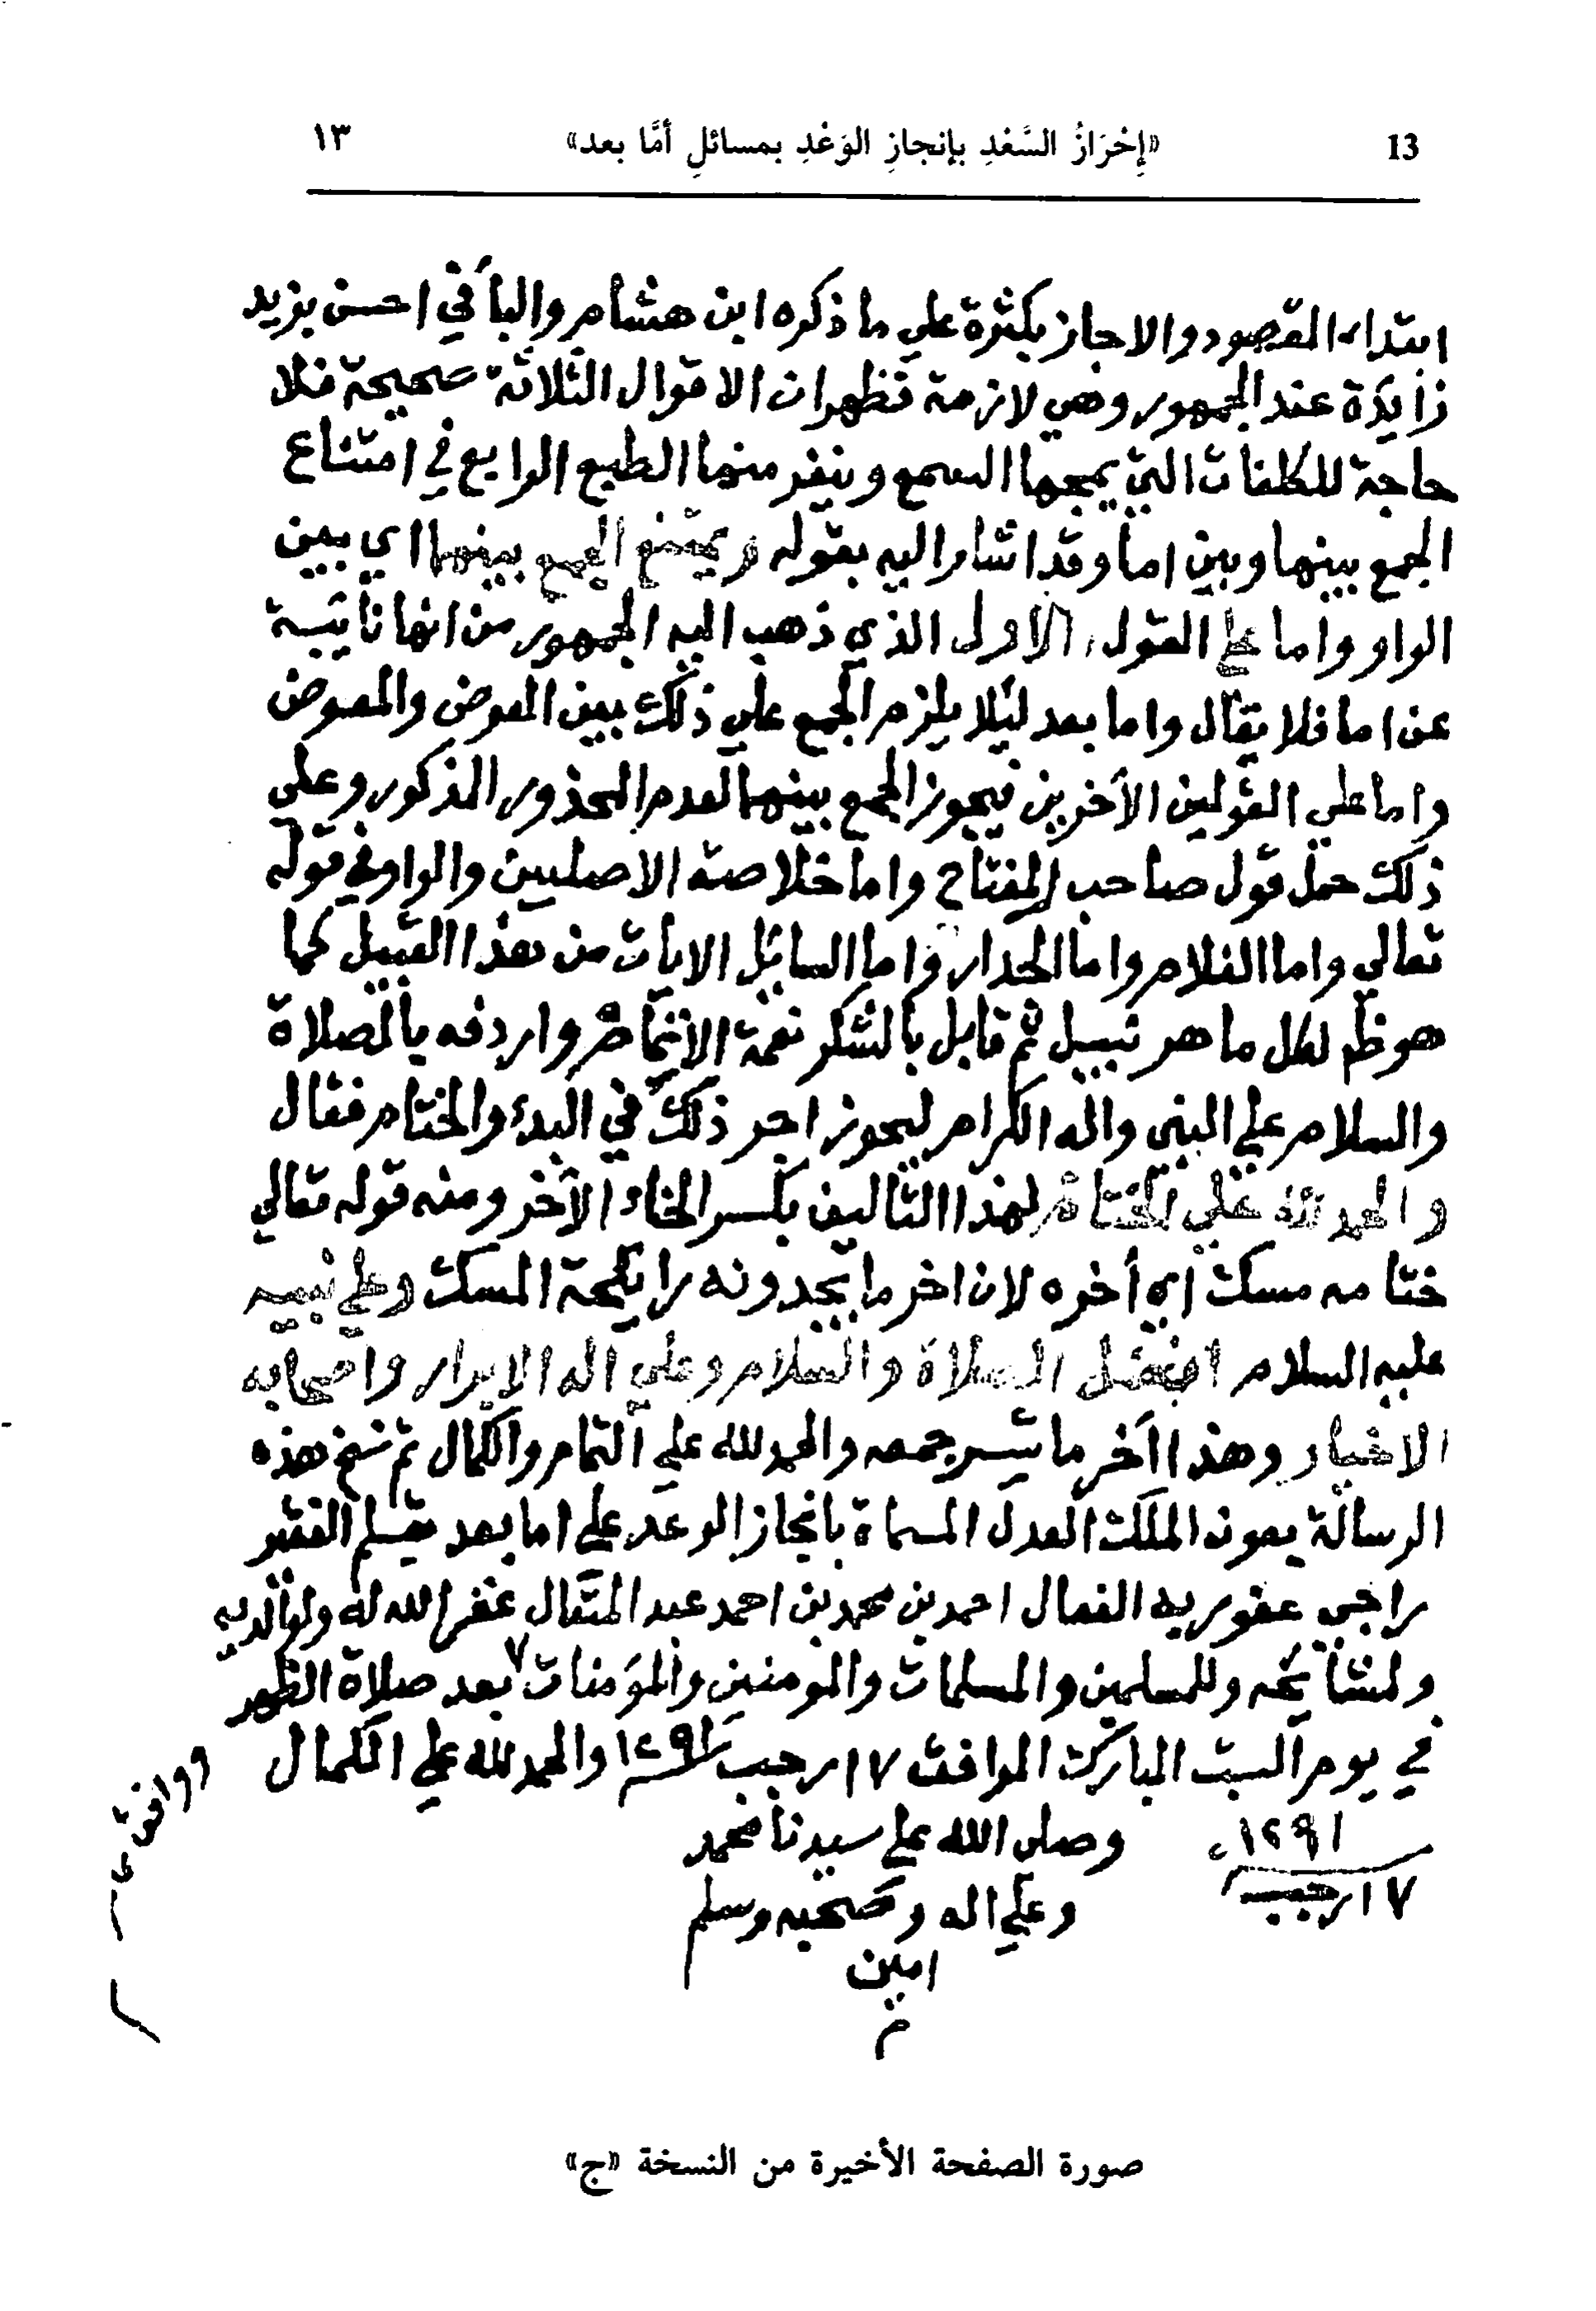 ١٣ «إِحْرَازُ السَّعْدِ بإنجازِ الوَعْدِ بمسائلِ أمَّا بعد» 13
ابتداء المقصود والاجاز بكثرة علي ما ذكره ابن هشام والبأ في احسن بزيد
زايدة عند الجمهور وهي لازمة فظهر ان الاقوال الثلاثة صحيحة فلا
حاجة للكلفات التي يمجها السمع وينفر منها الطبع الرابع في امتناع
الجمع بينها وبين اما وقد اشار اليه بقوله ويمتنع الجمع بينهما اي بين
الواو واما علي القول الاول الذي ذهب اليه الجمهور من انها نايبة
عن اما فلا يقال واما بعد ليلا يلزم الجمع علي ذلك بين العوض والمعوض
واما علي القولين الأخرين فيجوز الجمع بينهما لعدم المحذور المذكور وعلي
ذلك حمل قول صاحب المفتاح واما خلاصة الاصليين والواو في قوله
تعالي واما الغلام واما الجدار واما السايل الايات من هذا القبيل كما
هو ظم لكل ما هو نبيل ثم قابل بالشكر نعمة الاتمام واردفه بالصلاة
والسلام علي النبي واله الكرام ليحوز اجر ذلك في البدء والختام فقال
والحمد لله علي الختام لهذا التاليف بكسر الخاء الآخر ومنه قوله تعالي
ختامه مسك اي أخره لان اخر ما يجدونه رايحة المسك وعلي نبيه
عليه السلام افضل الصلاة والسلام وعلي اله الابرار واصحابه
الاخيار وهذا آخر ما تيسر جمعه والحمد لله علي التمام والكمال تم نسخ هذه
الرسالة بعون الملك العدل المسماة بانجاز الوعد علي اما بعد بقلم الفقير
راجي عفو ربه الفعال احمد بن محمد بن احمد عبد المتعال غفر الله له ولوالديه
ولمشايخه وللمسلمين والمسلمات والمومنين والمؤمنات بعد صلاة الظهر
في يوم السبت المبارك الموافق ١٧ رجب سنة ١٢٩١ والحمد لله علي الكمال
وصلي الله علي سيدنا محمد
١٢٩١
١٧ رجب
وعلي اله وصحبه وسلم
امين
م
ووافق
صورة الصفحة الأخيرة من النسخة «ج»